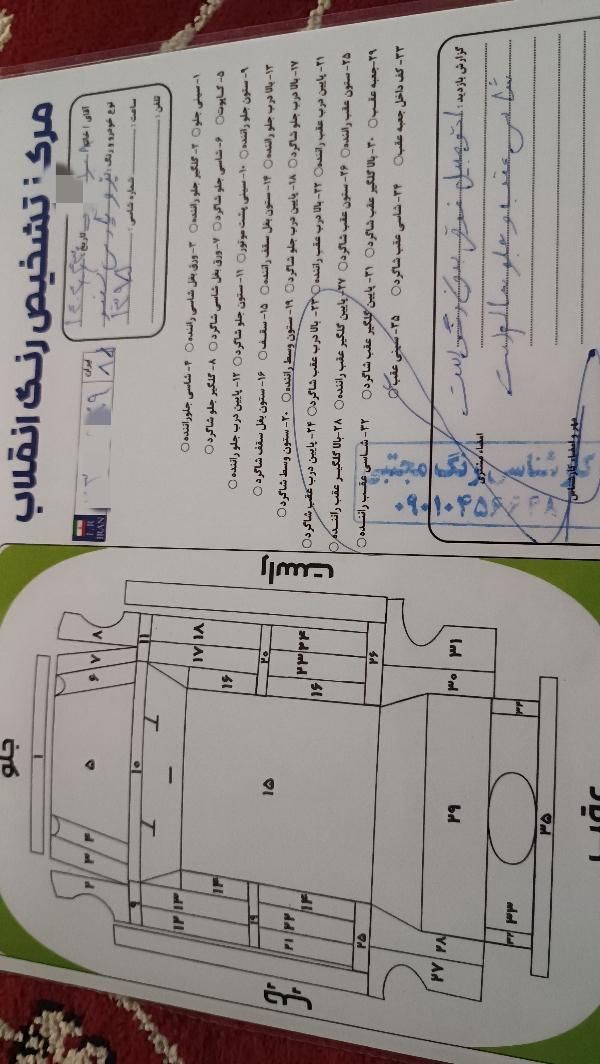 مرکز تشخیص رنگ انقلاب
آقای / خانم:
تاریخ:
نوع خودرو و رنگ:
۱۳۹۵
ساعت:
شماره شاسی:
تلفن:
ایران
I.R.
IRAN
۱- سینی جلو ۲- گلگیر جلو راننده ۳- ورق بغل شاسی راننده ۴- شاسی جلو راننده
۵- کاپوت ۶- شاسی جلو شاگرد ۷- ورق بغل شاسی شاگرد ۸- گلگیر جلو شاگرد
۹- ستون جلو راننده ۱۰- سینی پشت موتور ۱۱- ستون جلو شاگرد ۱۲- پایین درب جلو راننده
۱۳- بالا درب جلو راننده ۱۴- ستون بغل سقف راننده ۱۵- سقف ۱۶- ستون بغل سقف شاگرد
۱۷- بالا درب جلو شاگرد ۱۸- پایین درب جلو شاگرد ۱۹- ستون وسط راننده ۲۰- ستون وسط شاگرد
۲۱- پایین درب عقب راننده ۲۲- بالا درب عقب راننده ۲۳- بالا درب عقب شاگرد ۲۴- پایین درب عقب شاگرد
۲۵- ستون عقب راننده ۲۶- ستون عقب شاگرد ۲۷- پایین گلگیر عقب راننده ۲۸- بالا گلگیر عقب راننده
۲۹- جعبه عقب ۳۰- بالا گلگیر عقب شاگرد ۳۱- پایین گلگیر عقب شاگرد ۳۲- شاسی عقب راننده
۳۳- کف داخل جعبه عقب ۳۴- شاسی عقب شاگرد ۳۵- سینی عقب
گزارش بازدید: اتومبیل فوق بدون رنگ است
شاسی عقب و جلو سالم است
امضاء مشتری
مهر و امضاء کارشناس
کارشناس رنگ مجتبی
۰۹۰۱۰۴۵۶۶۴۸
جلو
۱
۲ ۳ ۴ ۵ ۶ ۷ ۸
۹ ۱۰ ۱۱
۱۲ ۱۳ ۱۴ ۱۵ ۱۶ ۱۷ ۱۸
۱۹ ۲۰
۲۱ ۲۲ ۱۴ ۱۶ ۲۳ ۲۴
۲۵ ۲۶
۲۷ ۲۸ ۲۹ ۳۰ ۳۱
۳۲ ۳۳ ۳۴
۳۵
عقب